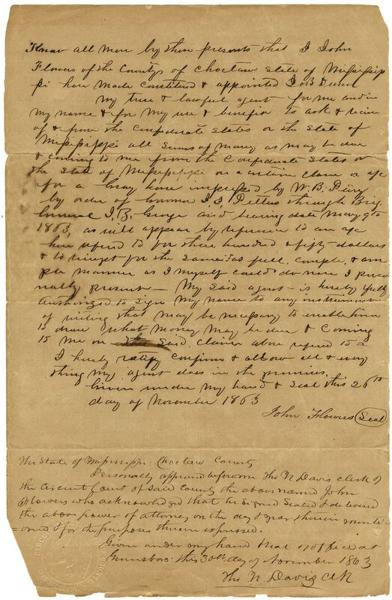 Know all men by these presents that I John
Flowers of the County of Choctaw State of Mississip
pi have made Constituted & appointed J B Dunn
my true & lawful agent for me and in
my name & for my use & benefit to ask & reciv
of & from the Confederate States or the State of
Mississippi all sums of money as may be due
& coming to me from the Confederate States or
the State of Mississippi on a certain claim or
for a bay horse impressed by W. B. Perry
by order of Governor J. J. Pettus through Brig.
General J. Z. George and bearing date May 9th
1863, as will appear by refrence to
here refered to for three hundred & fifty dollars
& to receipt for the same in as full, complete, & am
ple manner as I myself could do were I perso
nally present - My said agent is hereby fully
authorized to sign my name to any instrument
of writing that may be necessary to enable him
to draw what money may be due & coming
to me on said claim above refered to &
I hereby ratify confirm & allow all & every
thing my agent does in the premises.
Given under my hand & seal this 26th
day of November 1863
John Flowers Seal
The State of Mississippi Choctaw County
Personally appeared before me Tho N Davis clerk of
the Circuit Court of said County the above named John
Flowers who acknowledged that he signed sealed & delivered
the above power of attorney on the day & year therein menti
oned & for the purposes therein expressed
Given under my hand & seal of office at
Greensboro this 30th day of November 1863
Tho N Davis Clk